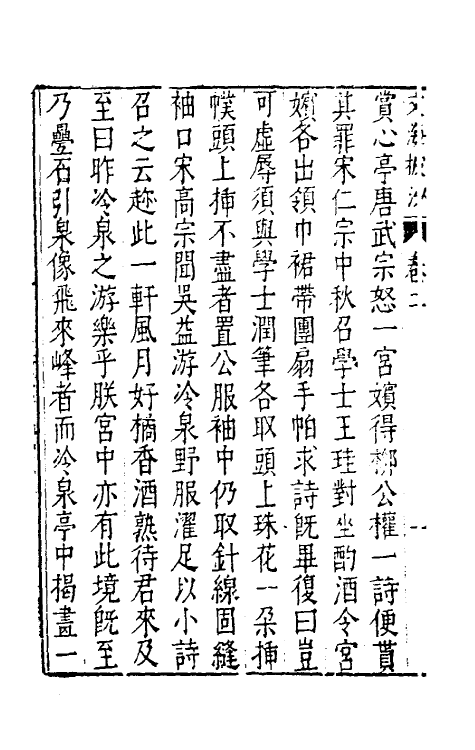 文海披沙 卷二 一
賞心亭唐武宗怒一宮嬪得栁公權一詩便貰
其罪宋仁宗中秋召學士王珪對坐酌酒令宮
嬪各出領巾裙帶團扇手帕求詩旣畢復曰豈
可虛辱須與學士潤筆各取頭上珠花一朵揷
幞頭上揷不盡者置公服袖中仍取針線固縫
袖口宋高宗聞吳益游冷泉野服濯足以小詩
召之云趂此一軒風月好橘香酒熟待君來及
至曰昨冷泉之游樂乎朕宮中亦有此境旣至
乃疊石引泉像飛來峰者而冷泉亭中揭畫一